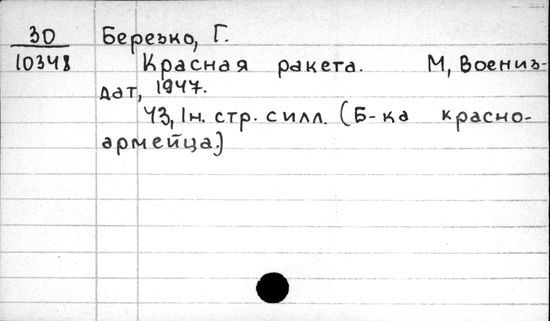 30
10348
Березко, Г.
Красная ракета. М, Воениз-
дат, 1947.
43, 1н. стр. с илл. (Б-ка красно-
армейца.)